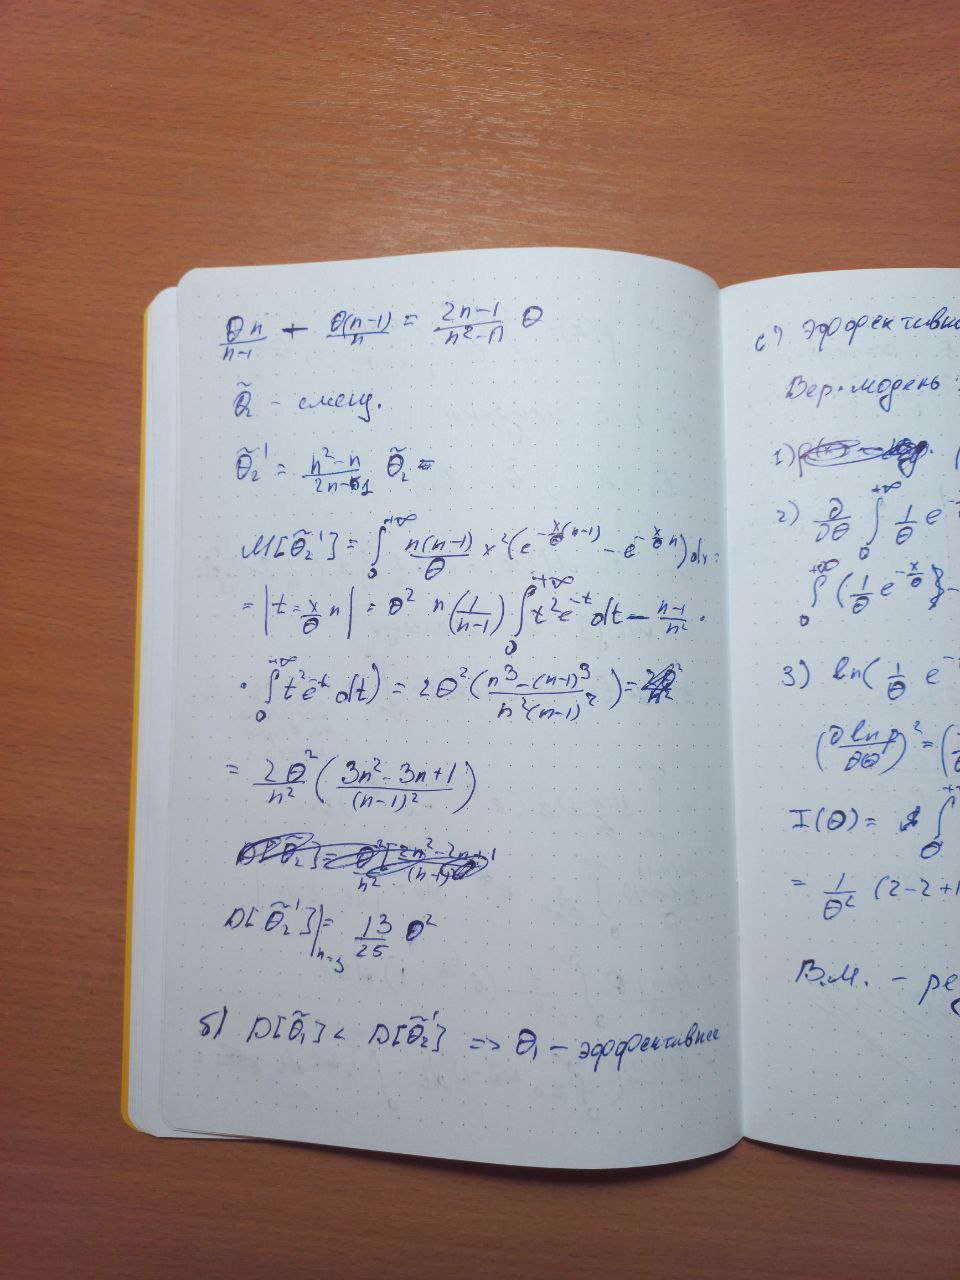 θn/(n-1) - θ(n-1)/n = (2n-1)/(n²-n) θ
θ̃₂ - смещ.
θ̃₂' = (n²-n)/(2n-1) θ̃₂ =
M[θ̃₂'] = ∫₀^{+∞} n(n-1)/θ x²(e^{-x/θ (n-1)} - e^{-x/θ n}) dx =
= |t = x/θ n| = θ² n(1/(n-1)) ∫₀^{+∞} t² e^{-t} dt - (n-1)/n² ·
· ∫₀^{+∞} t² e^{-t} dt) = 2θ² ((n³-(n-1)³)/(n²(n-1)²)) =
= 2θ²/n² ((3n²-3n+1)/(n-1)²)
D[θ̃₂']|ₙ₌₃ = 13/25 θ²
б) D[θ̃₁] < D[θ̃₂'] => θ₁ - эффективнее
с) Эффективн
Вер. модель
1)
2) ∂/∂θ ∫₀^{+∞} 1/θ e⁻
∫₀^{+∞} (1/θ e^{-x/θ} -
3) ln(1/θ e⁻
(∂ ln p/∂θ)² = (
I(θ) = ∫₀
= 1/θ² (2-2+1
В.М. - рег